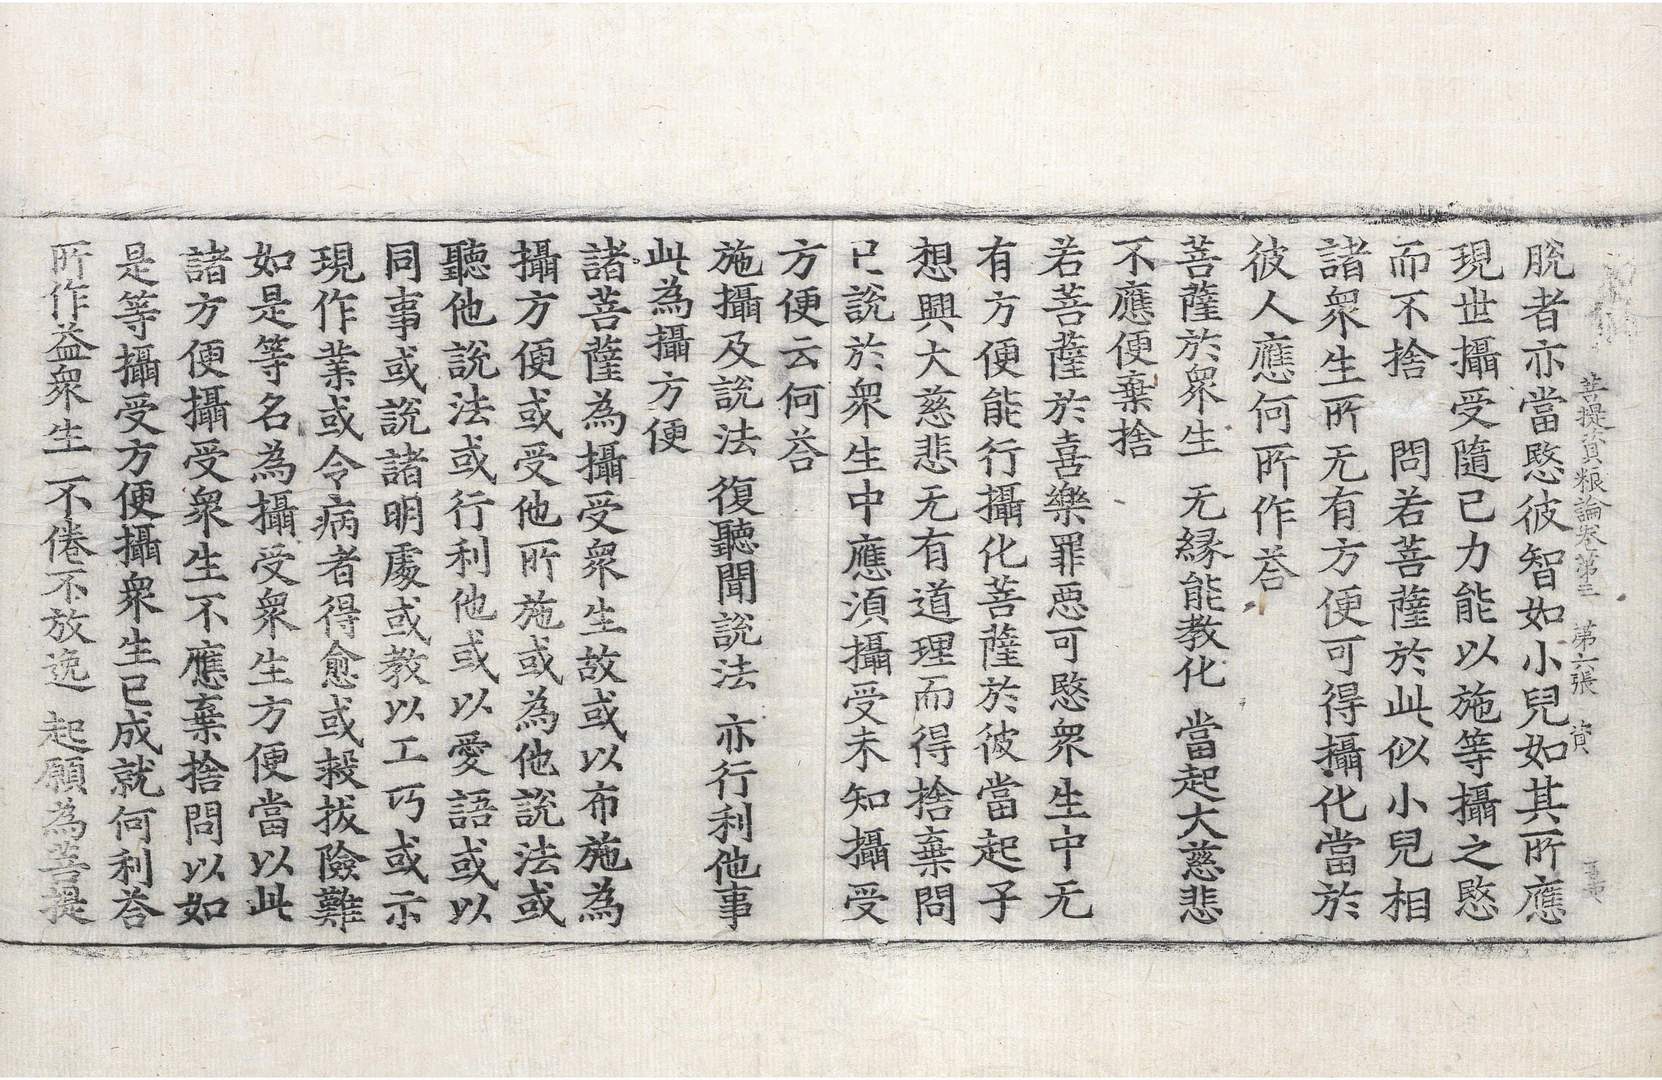 菩提資粮論卷第三　第六張　資
脫者亦當愍彼智如小兒如其所應
現世攝受隨己力能以施等攝之愍
而不捨　問若菩薩於此似小兒相
諸衆生所无有方便可得攝化當於
彼人應何所作荅
菩薩於衆生　无緣能教化　當起大慈悲
不應便棄捨
若菩薩於喜樂罪惡可愍衆生中无
有方便能行攝化菩薩於彼當起子
想興大慈悲无有道理而得捨棄問
已說於衆生中應湏攝受未知攝受
方便云何荅
施攝及說法　復聽聞說法　亦行利他事
此為攝方便
諸菩薩為攝受衆生故或以布施為
攝方便或受他所施或為他說法或
聽他說法或行利他或以愛語或以
同事或說諸明處或教以工巧或示
現作業或令病者得愈或救拔險難
如是等名為攝受衆生方便當以此
諸方便攝受衆生不應棄捨問以如
是等攝受方便攝衆生已成就何利荅
所作益衆生　不倦不放逸　起願為菩提